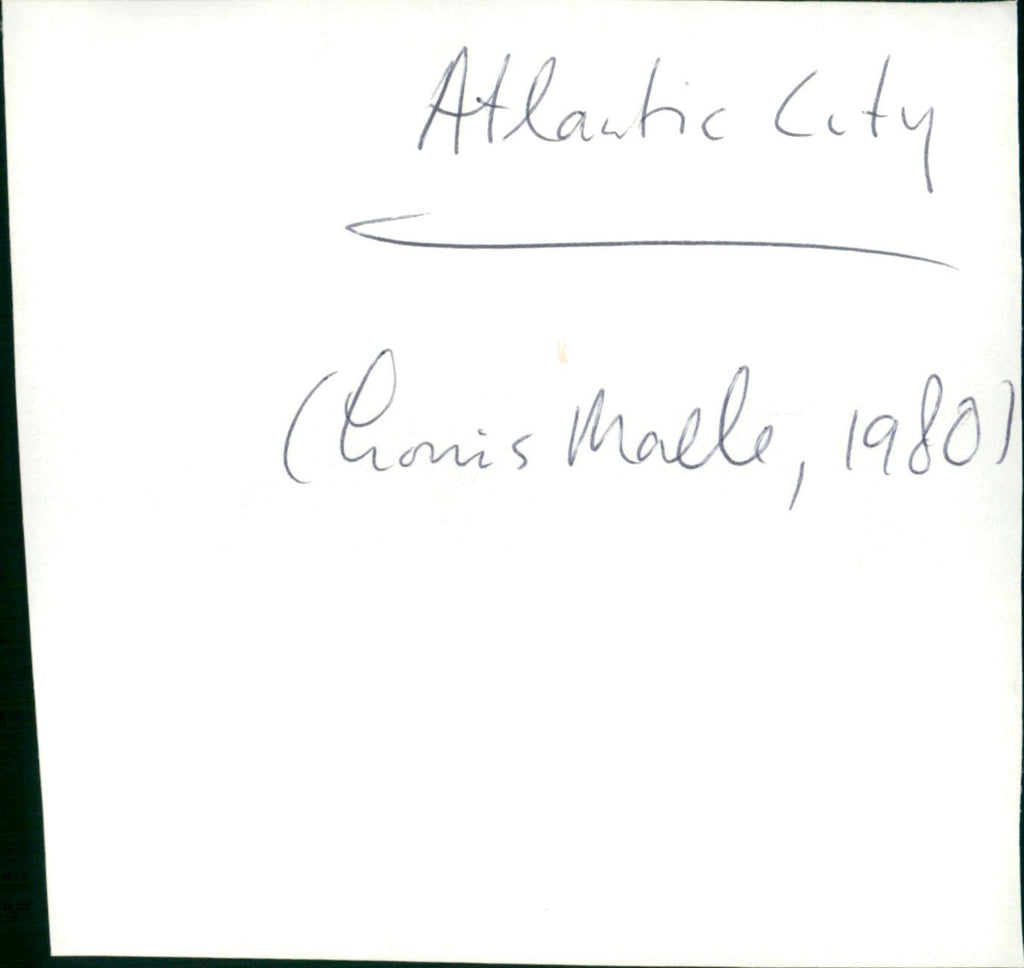 Atlantic City
(Louis Malle, 1980)